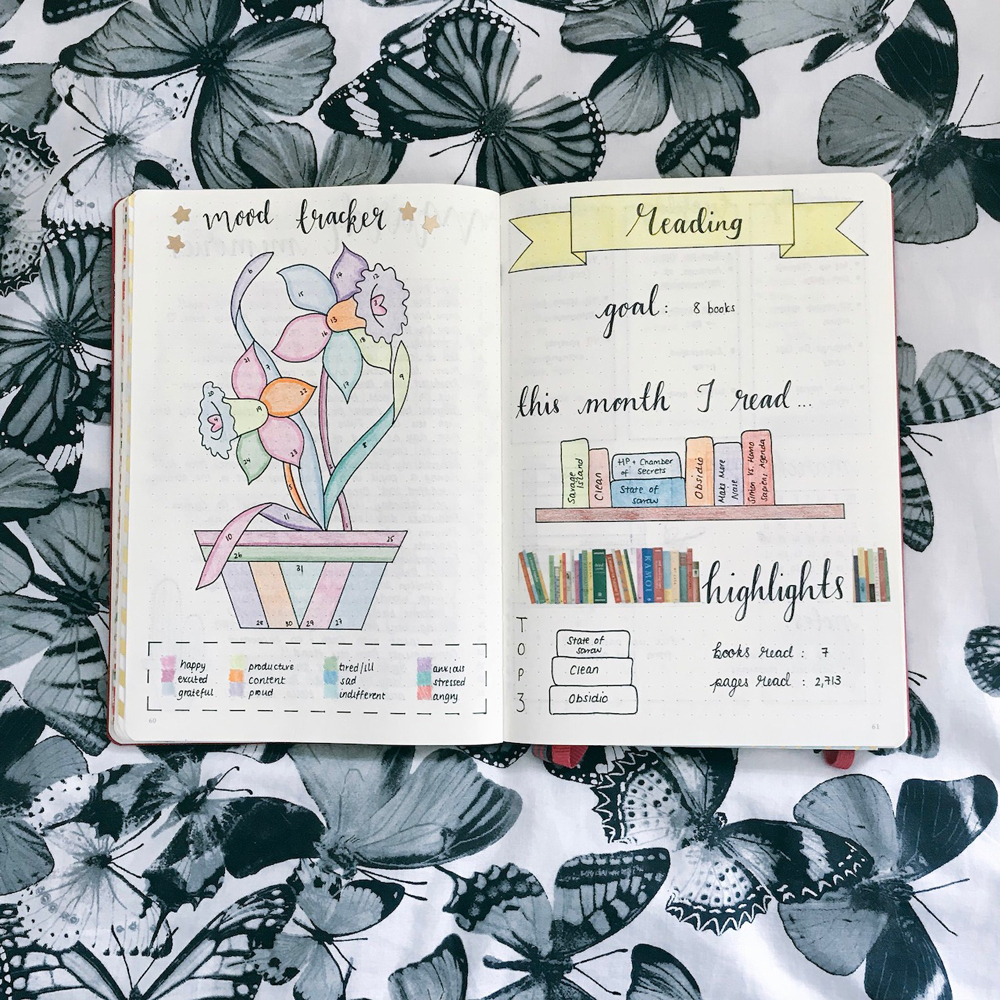 mood tracker
19
17
18
3
13
16
15
9
21
22
19
24
23
8
11
10
25
26
31
28
30
29
27
happy
excited
grateful
productive
content
proud
tired/ill
sad
indifferent
anxious
stressed
angry
60
Reading
goal: 8 books
this month I read...
Savage Island
Clean
HP + Chamber
of Secrets
State of
sorrow
Obsidio
Make More
Noise
Simon Vs. Homo
Sapiens Agenda
highlights
TOP 3
State of
sorrow
Clean
Obsidio
books read : 7
pages read : 2,713
61